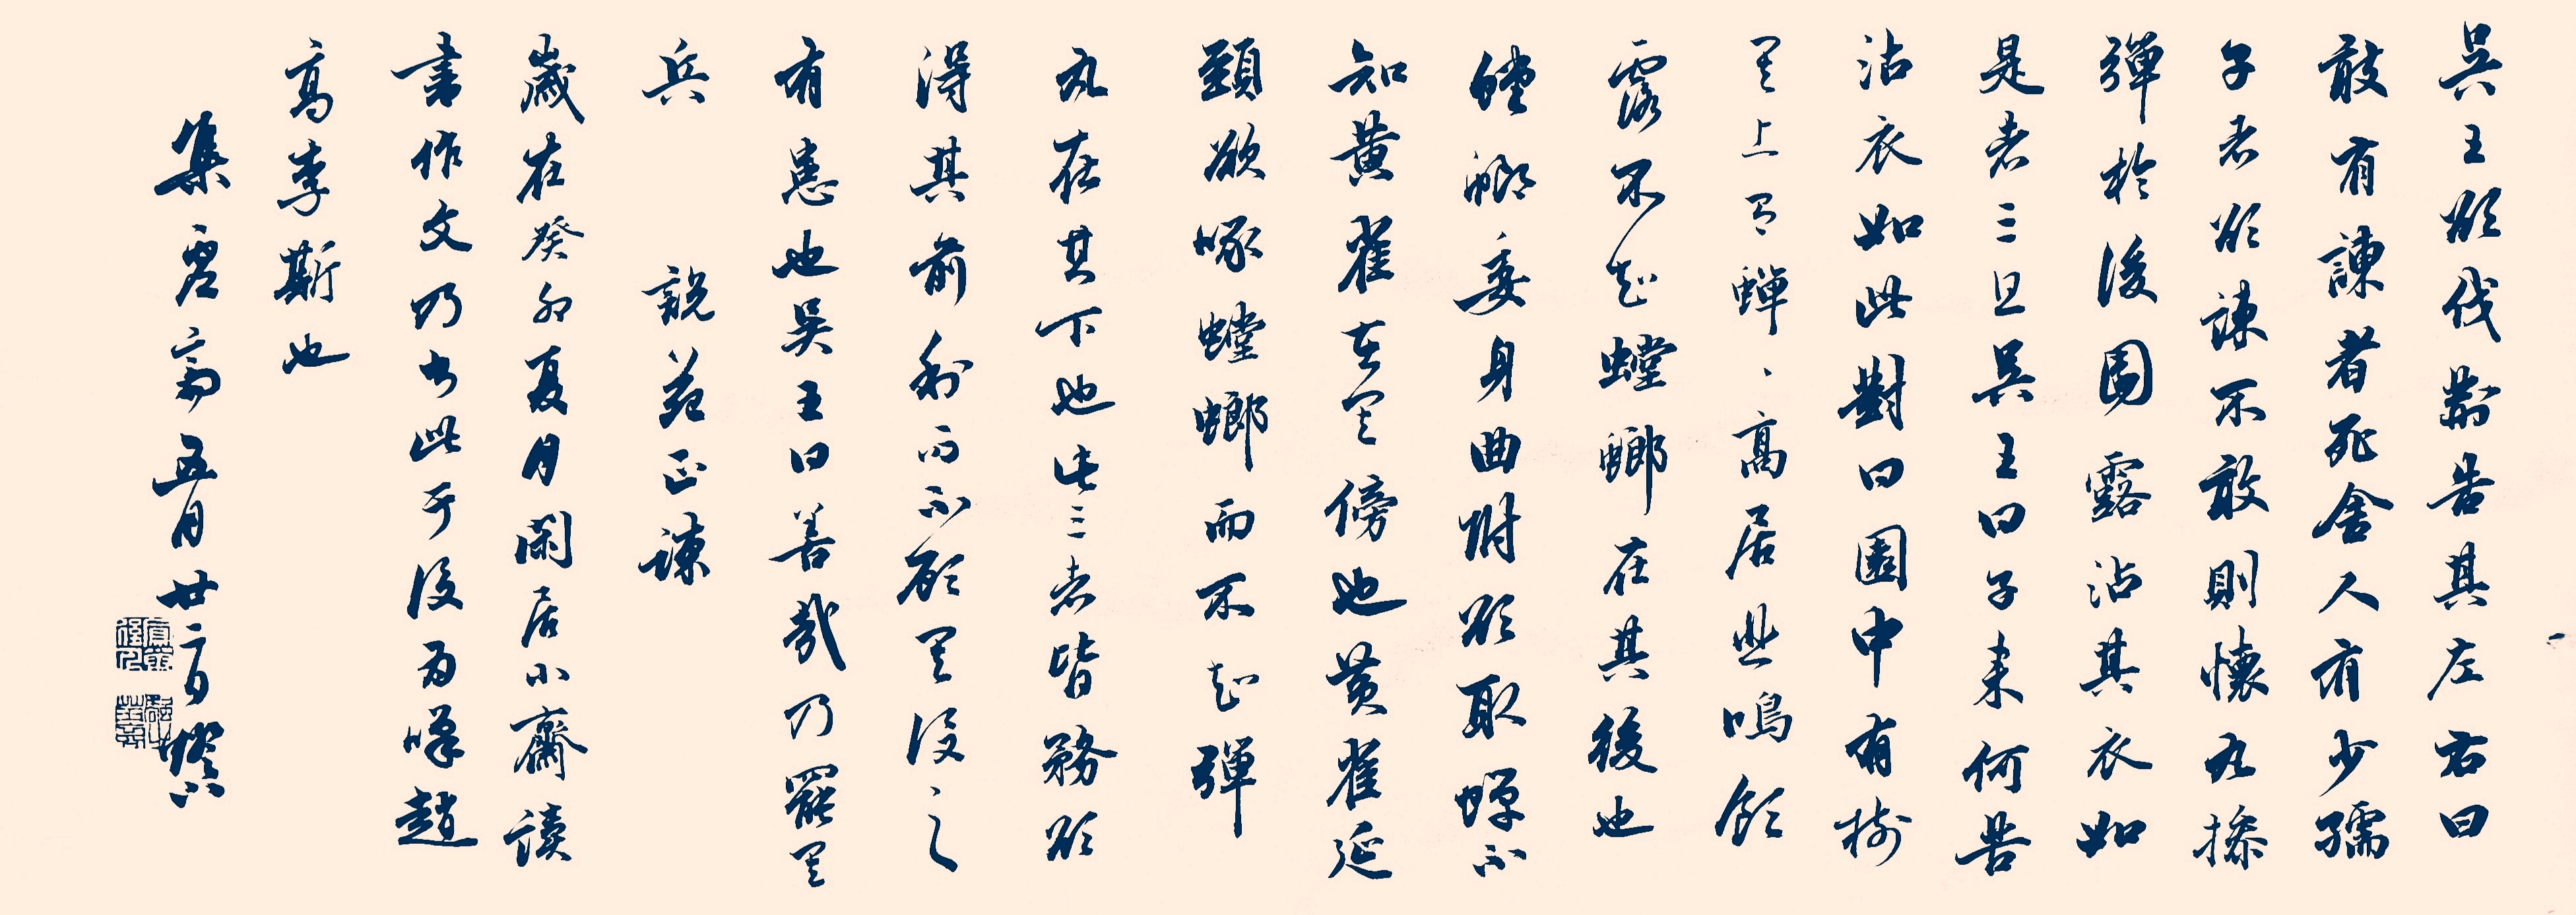 吳王欲伐荊告其左右曰
敢有諫者死舍人有少孺
子者欲諫不敢則懷丸操
彈於後園露沾其衣如
是者三旦吳王曰子来何苦
沾衣如此對曰園中有樹
其上有蟬、高居悲鳴飲
露不知螳螂在其後也
螳螂委身曲附欲取蟬不
知黃雀在其傍也黃雀延
頸欲啄螳螂而不知彈
丸在其下也此三者皆務欲
得其前利而不顧其後之
有患也吳王曰善哉乃罷其
兵 說苑正諫
歲在癸卯夏月閑居小齋讀
書作文乃書此于後為嘆趙
高李斯也
集虛齋五月廿二日燈下